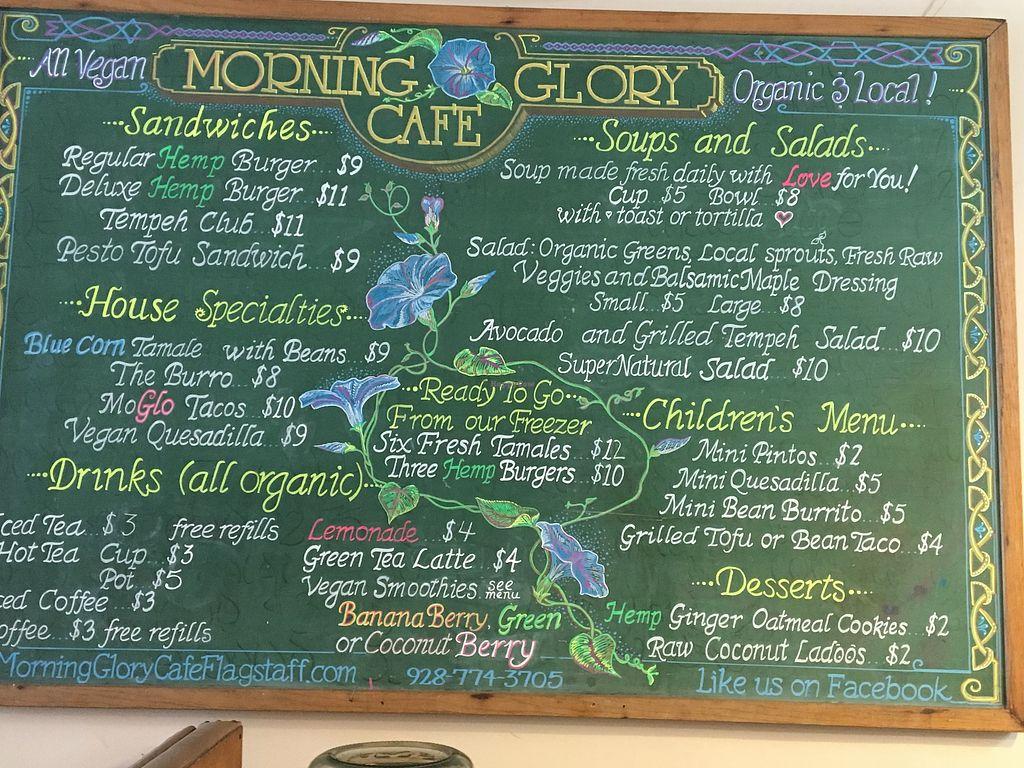 All Vegan
MORNING GLORY
CAFE
Organic & Local!
Sandwiches
Regular Hemp Burger $9
Deluxe Hemp Burger $11
Tempeh Club $11
Pesto Tofu Sandwich $9
House Specialties
Blue Corn Tamale with Beans $9
The Burro $8
MoGlo Tacos $10
Vegan Quesadilla $9
Soups and Salads
Soup made fresh daily with Love for You!
Cup $5 Bowl $8
with toast or tortilla
Salad: Organic Greens, Local sprouts, Fresh Raw
Veggies and Balsamic Maple Dressing
Small $5 Large $8
Avocado and Grilled Tempeh Salad $10
SuperNatural Salad $10
Ready To Go
From our Freezer
Six Fresh Tamales $12
Three Hemp Burgers $10
Children's Menu
Mini Pintos $2
Mini Quesadilla $5
Mini Bean Burrito $5
Grilled Tofu or Bean Taco $4
Drinks (all organic)
ced Tea $3 free refills
Hot Tea Cup $3
Pot $5
ced Coffee $3
offee $3 free refills
Lemonade $4
Green Tea Latte $4
Vegan Smoothies see menu
Banana Berry, Green
or Coconut Berry
Desserts
Hemp Ginger Oatmeal Cookies $2
Raw Coconut Ladoos $2
MorningGloryCafeFlagstaff.com
928-774-3705
Like us on Facebook